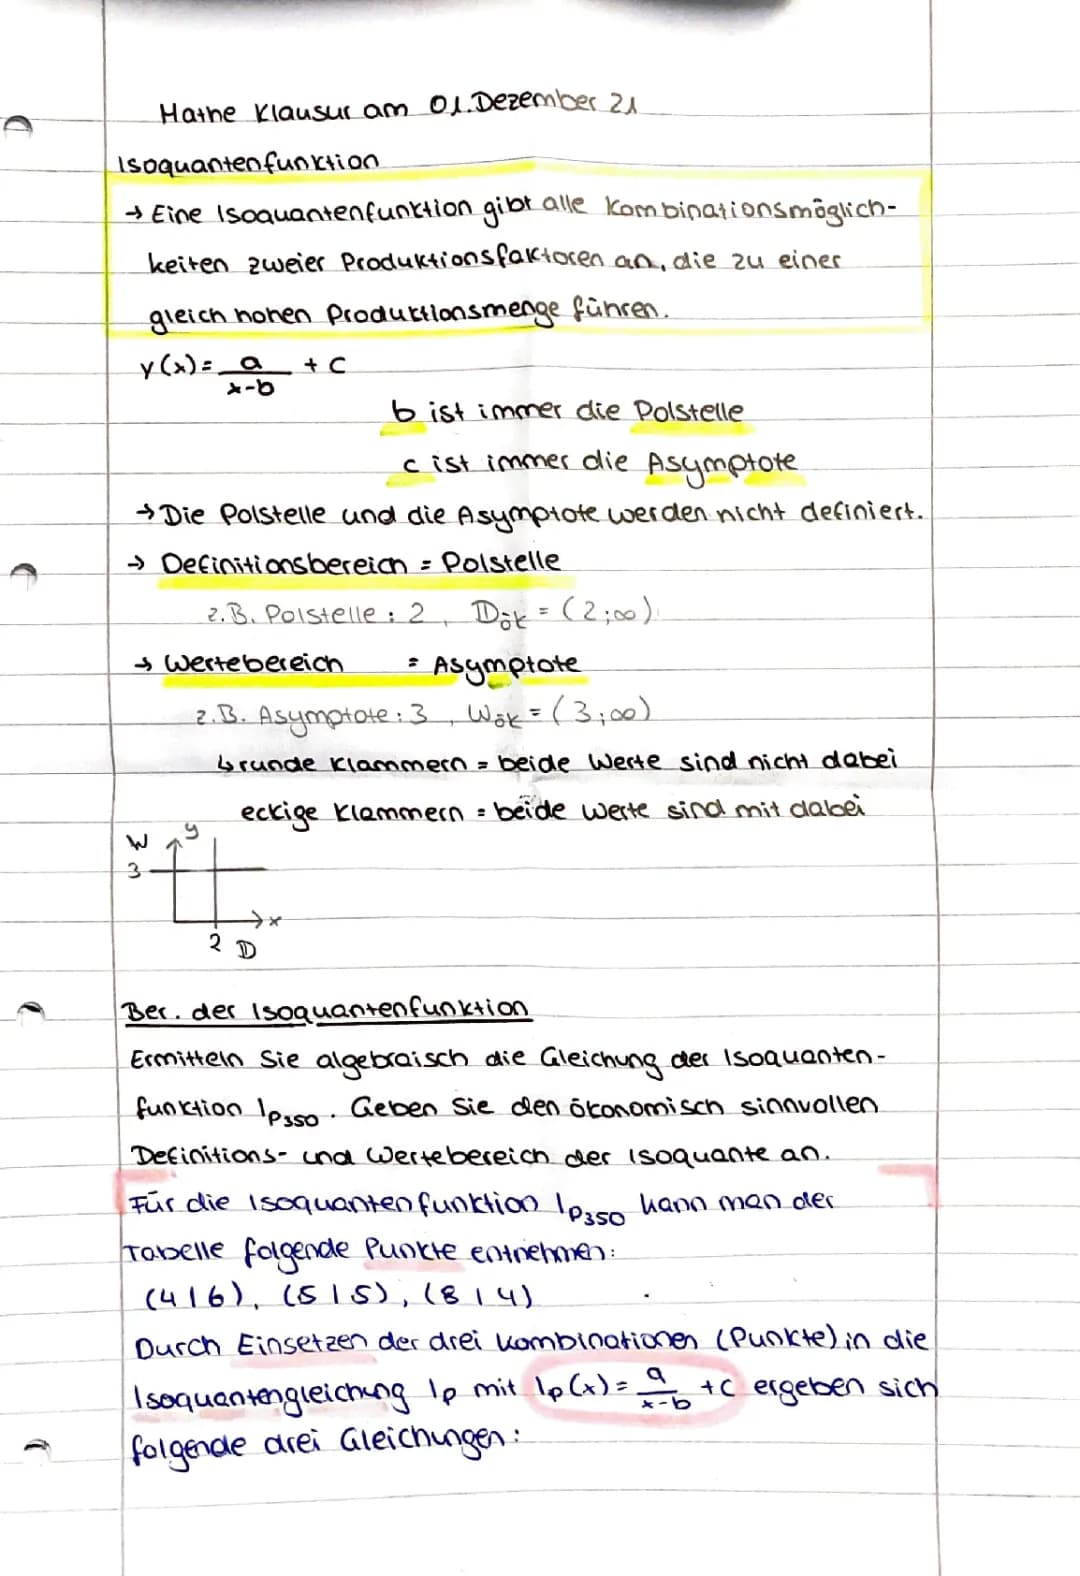 Mathe Klausur am 01.Dezember 21
Isoquantenfunktion
→ Eine Isoquantenfunktion gibt alle Kombinationsmöglich-
keiten zweier Produktionsfaktoren an, die zu einer
gleich hohen Produktionsmenge führen.
y(x) = a/(x-b) + c
b ist immer die Polstelle
c ist immer die Asymptote
→ Die Polstelle und die Asymptote werden nicht definiert.
→ Definitionsbereich = Polstelle
z.B. Polstelle : 2, Dök = (2;∞)
→ Wertebereich = Asymptote
z.B. Asymptote : 3, Wök = (3;∞)
↳ runde Klammern = beide Werte sind nicht dabei
eckige Klammern = beide Werte sind mit dabei
W y
3
x
2 D
Ber. der Isoquantenfunktion
Ermitteln Sie algebraisch die Gleichung der Isoquanten-
funktion Ip350. Geben Sie den ökonomisch sinnvollen
Definitions- und Wertebereich der Isoquante an.
Für die Isoquantenfunktion Ip350 kann man der
Tabelle folgende Punkte entnehmen:
(4|6), (5|5), (8|4)
Durch Einsetzen der drei Kombinationen (Punkte) in die
Isoquantengleichung Ip mit Ip(x) = a/(x-b) + c ergeben sich
folgende drei Gleichungen: